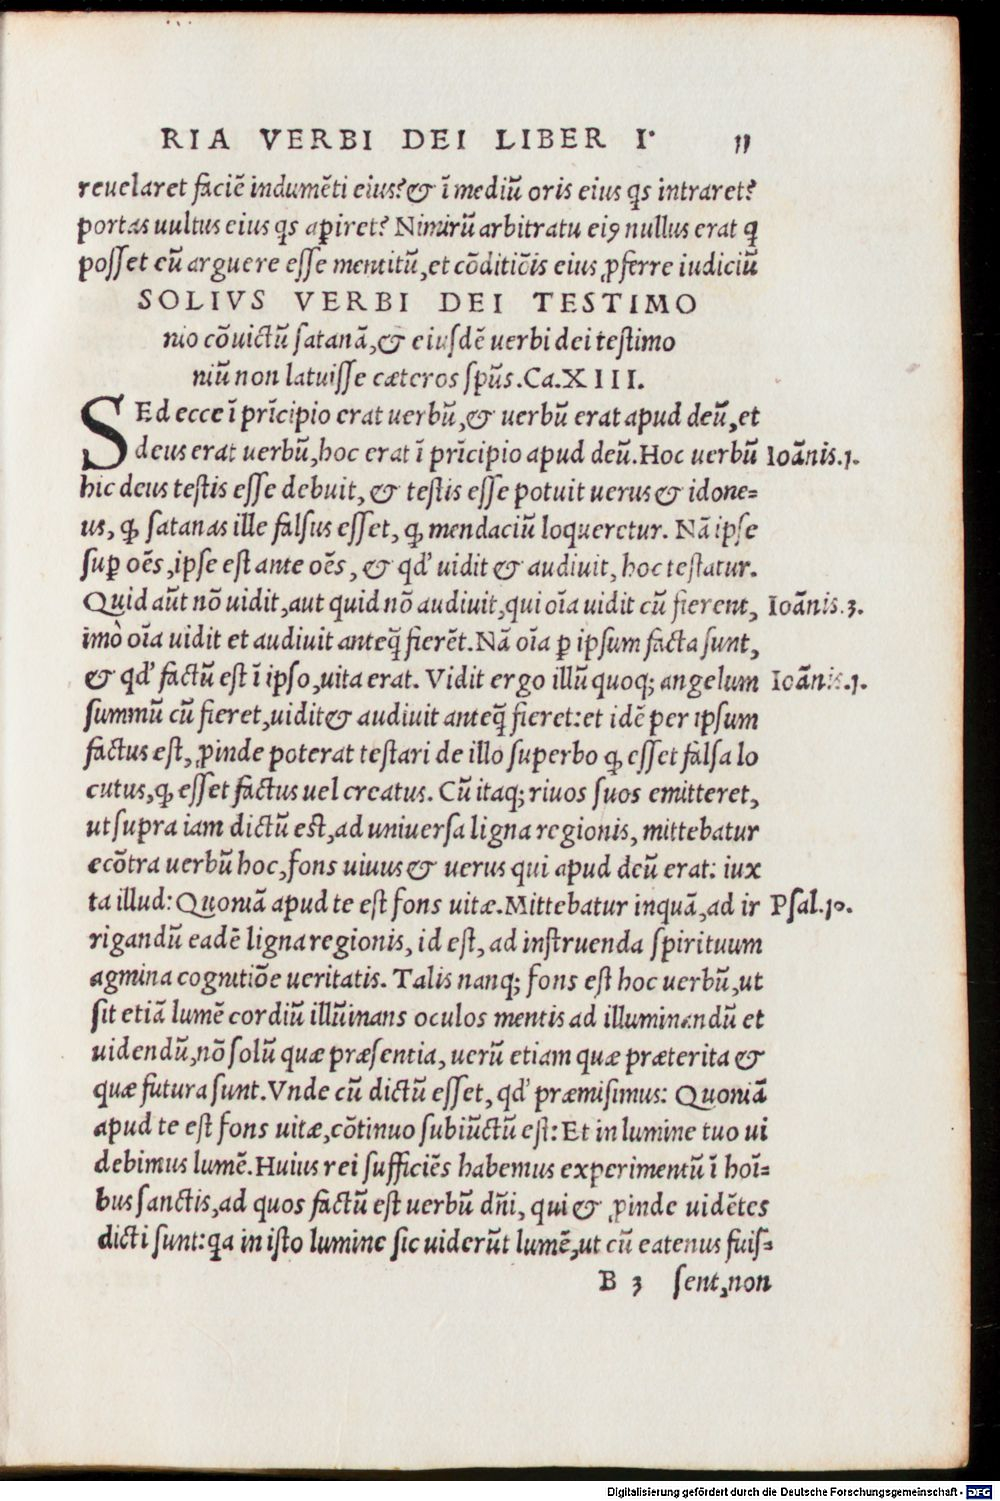 RIA VERBI DEI LIBER I. 11
reuelaret faciē indumēti eius? & ī mediū oris eius qs intraret?
portas uultus eius qs apiret? Nimirū arbitratu eiꝰ nullus erat q̄
posset eū arguere esse mentitū, et cōditiōis eius ꝓferre iudiciū
SOLIVS VERBI DEI TESTIMO
nio cōuictū satanā, & eiusdē uerbi dei testimo
niū non latuisse cæteros spūs. Ca. XIII.
SEd ecce ī prīcipio erat uerbū, & uerbū erat apud deū, et
deus erat uerbū, hoc erat ī prīcipio apud deū. Hoc uerbū Ioānis.1.
hic deus testis esse debuit, & testis esse potuit uerus & idone=
us, ꝙ satanas ille falsus esset, ꝙ mendaciū loqueretur. Nā ipse
suꝑ oēs, ipse est ante oēs, & qđ uidit & audiuit, hoc testatur.
Quid aūt nō uidit, aut quid nō audiuit, qui oīa uidit cū fierent, Ioānis.3.
imò oīa uidit et audiuit anteq̄ fierēt. Nā oīa ꝑ ipsum facta sunt,
& qđ factū est ī ipso, uita erat. Vidit ergo illū quoq; angelum Ioānis.1.
summū cū fieret, uidit & audiuit anteq̄ fieret: et idē per ipsum
factus est, ꝓinde poterat testari de illo superbo ꝙ esset falsa lo
cutus, ꝙ esset factus uel creatus. Cū itaq; riuos suos emitteret,
ut supra iam dictū est, ad uniuersa ligna regionis, mittebatur
ecōtra uerbū hoc, fons uiuus & uerus qui apud deū erat: iux
ta illud: Quoniā apud te est fons uitæ. Mittebatur inquā, ad ir Psal.10.
rigandū eadē ligna regionis, id est, ad instruenda spirituum
agmina cognitiōe ueritatis. Talis nanq; fons est hoc uerbū, ut
sit etiā lumē cordiū illūinans oculos mentis ad illuminandū et
uidendū, nō solū quæ præsentia, uerū etiam quæ præterita &
quæ futura sunt. Vnde cū dictū esset, qđ præmisimus: Quoniā
apud te est fons uitæ, cōtinuo subiūctū est: Et in lumine tuo ui
debimus lumē. Huius rei sufficiēs habemus experimentū ī hoī=
bus sanctis, ad quos factū est uerbū dñi, qui & ꝓinde uidētes
dicti sunt: qa in isto lumine sic uiderūt lumē, ut cū eatenus fuis=
B 3 sent, non
Digitalisierung gefördert durch die Deutsche Forschungsgemeinschaft - DFG